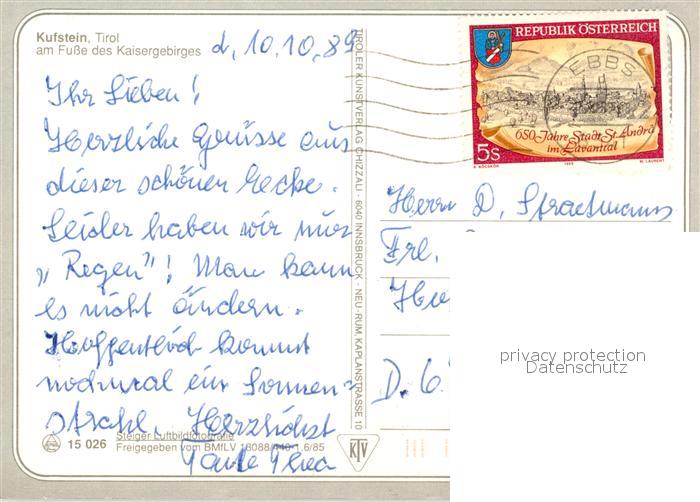 Kufstein, Tirol
am Fuße des Kaisergebirges
d, 10.10.89
Ihr Lieben!
Herzliche Grüsse aus
dieser schönen Ecke.
Leider haben wir nur
„Regen"! Man kann
es nicht ändern.
Hoffentlich kommt
nochmal ein Sonnen=
strahl. Herzlichst
Tante Thea
15 026
Steiger Luftbildfotografie
Freigegeben vom BMfLV 13088/440-1.6/85
TIROLER KUNSTVERLAG CHIZZALI - 6040 INNSBRUCK - NEU-RUM, KAPLANSTRASSE 10
KTV
REPUBLIK ÖSTERREICH
EBBS
650 Jahre Stadt St. Andrä
im Lavanttal
5s
1989
M. LAURENT
Herrn D. Straetmanns
Frl.
D. 6
privacy protection
Datenschutz